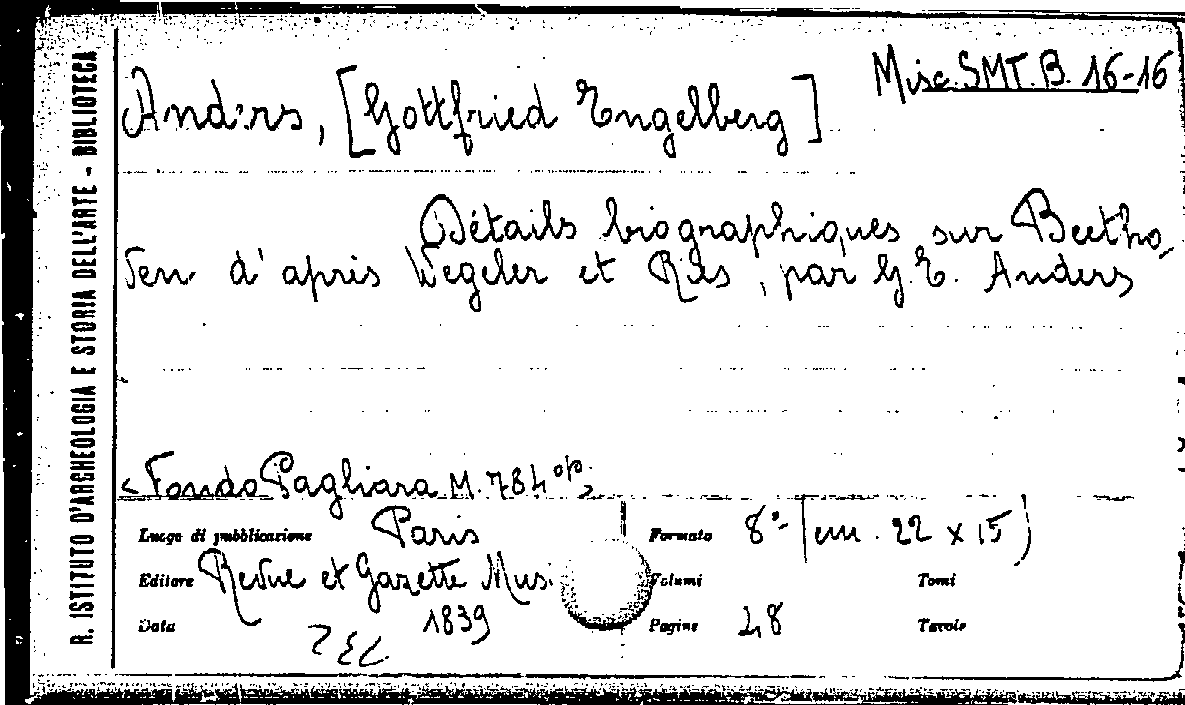 R. ISTITUTO D'ARCHEOLOGIA E STORIA DELL'ARTE - BIBLIOTECA
Misc. SMT. B. 16-16
Anders, [Gottfried Engelberg]
Détails biographiques sur Beetho,
ven d'après Wegeler et Ries, par G. E. Anders
<Fondo Pagliara M. 784 op>
Luogo di pubblicazione Paris
Formato 8°- (cm. 22 x 15)
Editore Revue et Gazette Mus
Volumi
Tomi
Data 1839
Pagine 48
Tavole